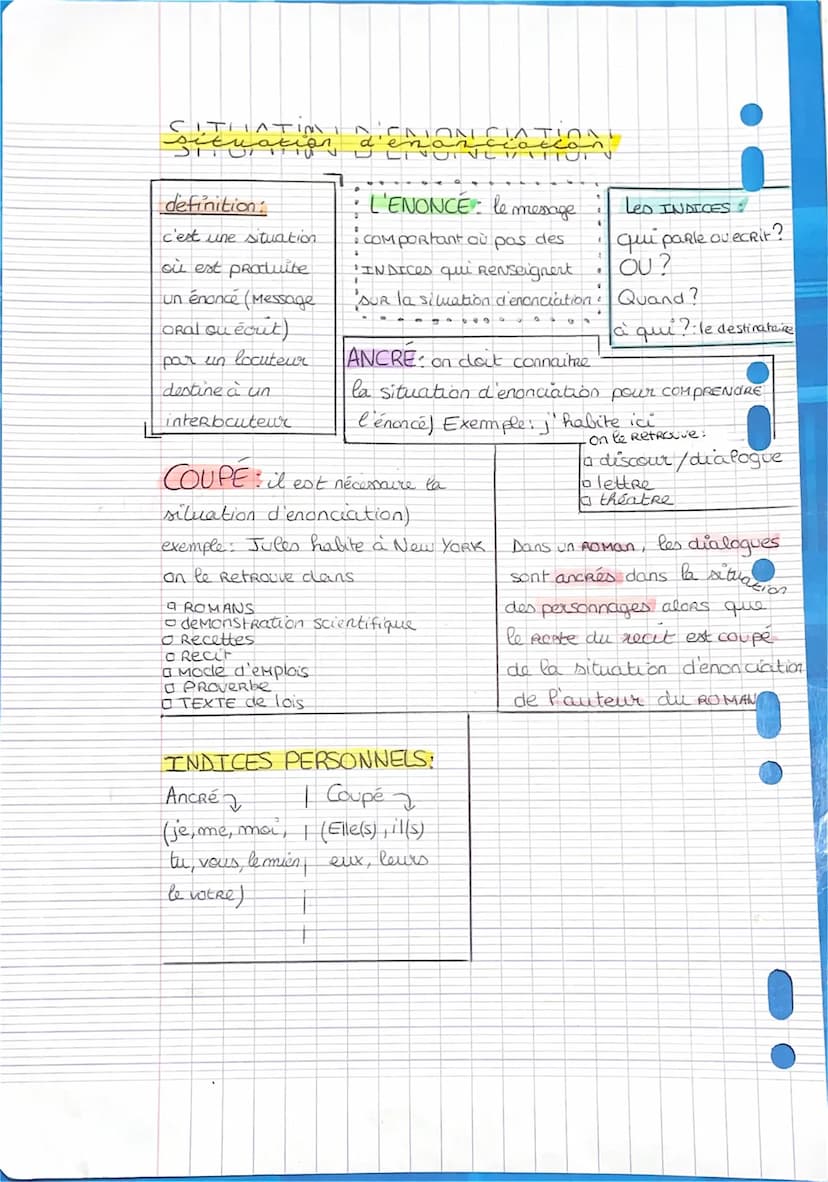 SITUATION D'ENONCIATION
situation d'enonciation
definition:
c'est une situation
où est produite
un énoncé (Message
oral ou écrit)
par un locuteur
destine à un
interlocuteur
L'ENONCÉ: le message
comportant où pas des
INDICES qui renseignent
sur la situation d'enonciation
Les INDICES:
qui parle ou ecrit?
OU?
Quand?
à qui?: le destinataire
ANCRÉ: on doit connaitre
la situation d'enonciation pour comprendre
l'énoncé) Exemple: j'habite ici
on le retrouve:
discour/dialogue
lettre
théatre
COUPÉ: il est nécessaire la
situation d'enonciation)
exemple: Jules habite à New York
on le retrouve dans
ROMANS
demonstration scientifique
Recettes
Recit
Mode d'emplois
Proverbe
TEXTE de lois
Dans un roman, les dialogues
sont ancrés dans la situation
des personnages alors que
le reste du recit est coupé
de la situation d'enonciation
de l'auteur du ROMAN
INDICES PERSONNELS:
Ancré | Coupé
(je, me, moi, | (Elle(s), il(s)
tu, vous, le mien, eux, leurs
le votre)